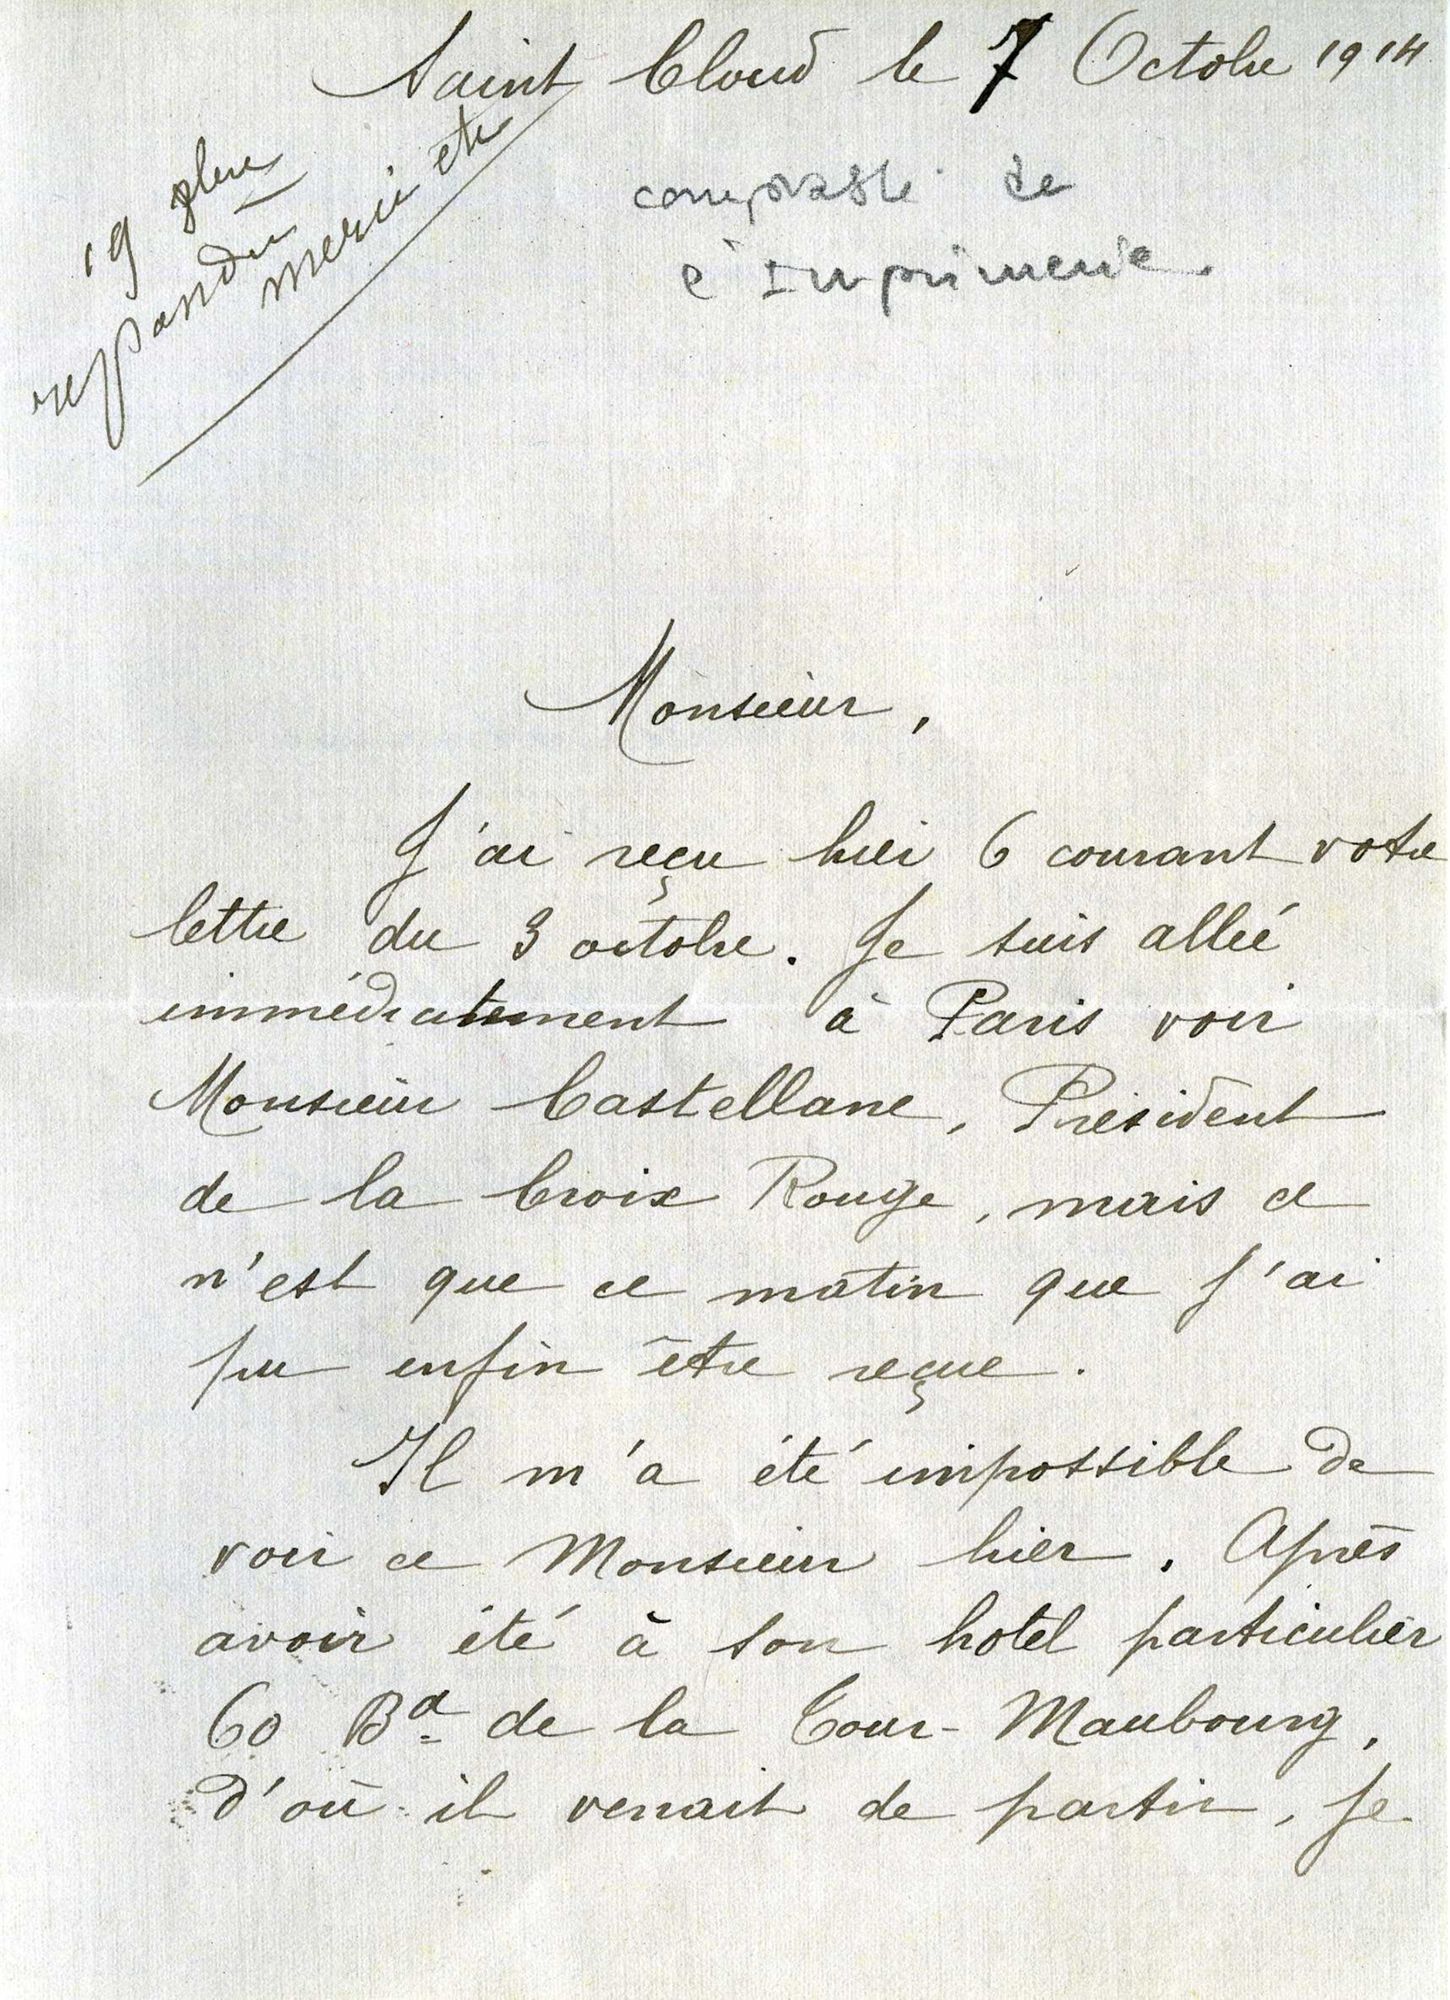 Saint Cloud le 7 Octobre 1914
19
repondu
merci etc
comptable de
l'Imprimerie
Monsieur,
J'ai reçu hier 6 courant votre
lettre du 3 octobre. Je suis allée
immédiatement à Paris voir
Monsieur Castellane, Président
de la Croix Rouge, mais ce
n'est que ce matin que j'ai
pu enfin être reçue.
Il m'a été impossible de
voir ce Monsieur hier. Après
avoir été à son hotel particulier
60 Bd de la Tour-Maubourg,
d'où il venait de partir, je